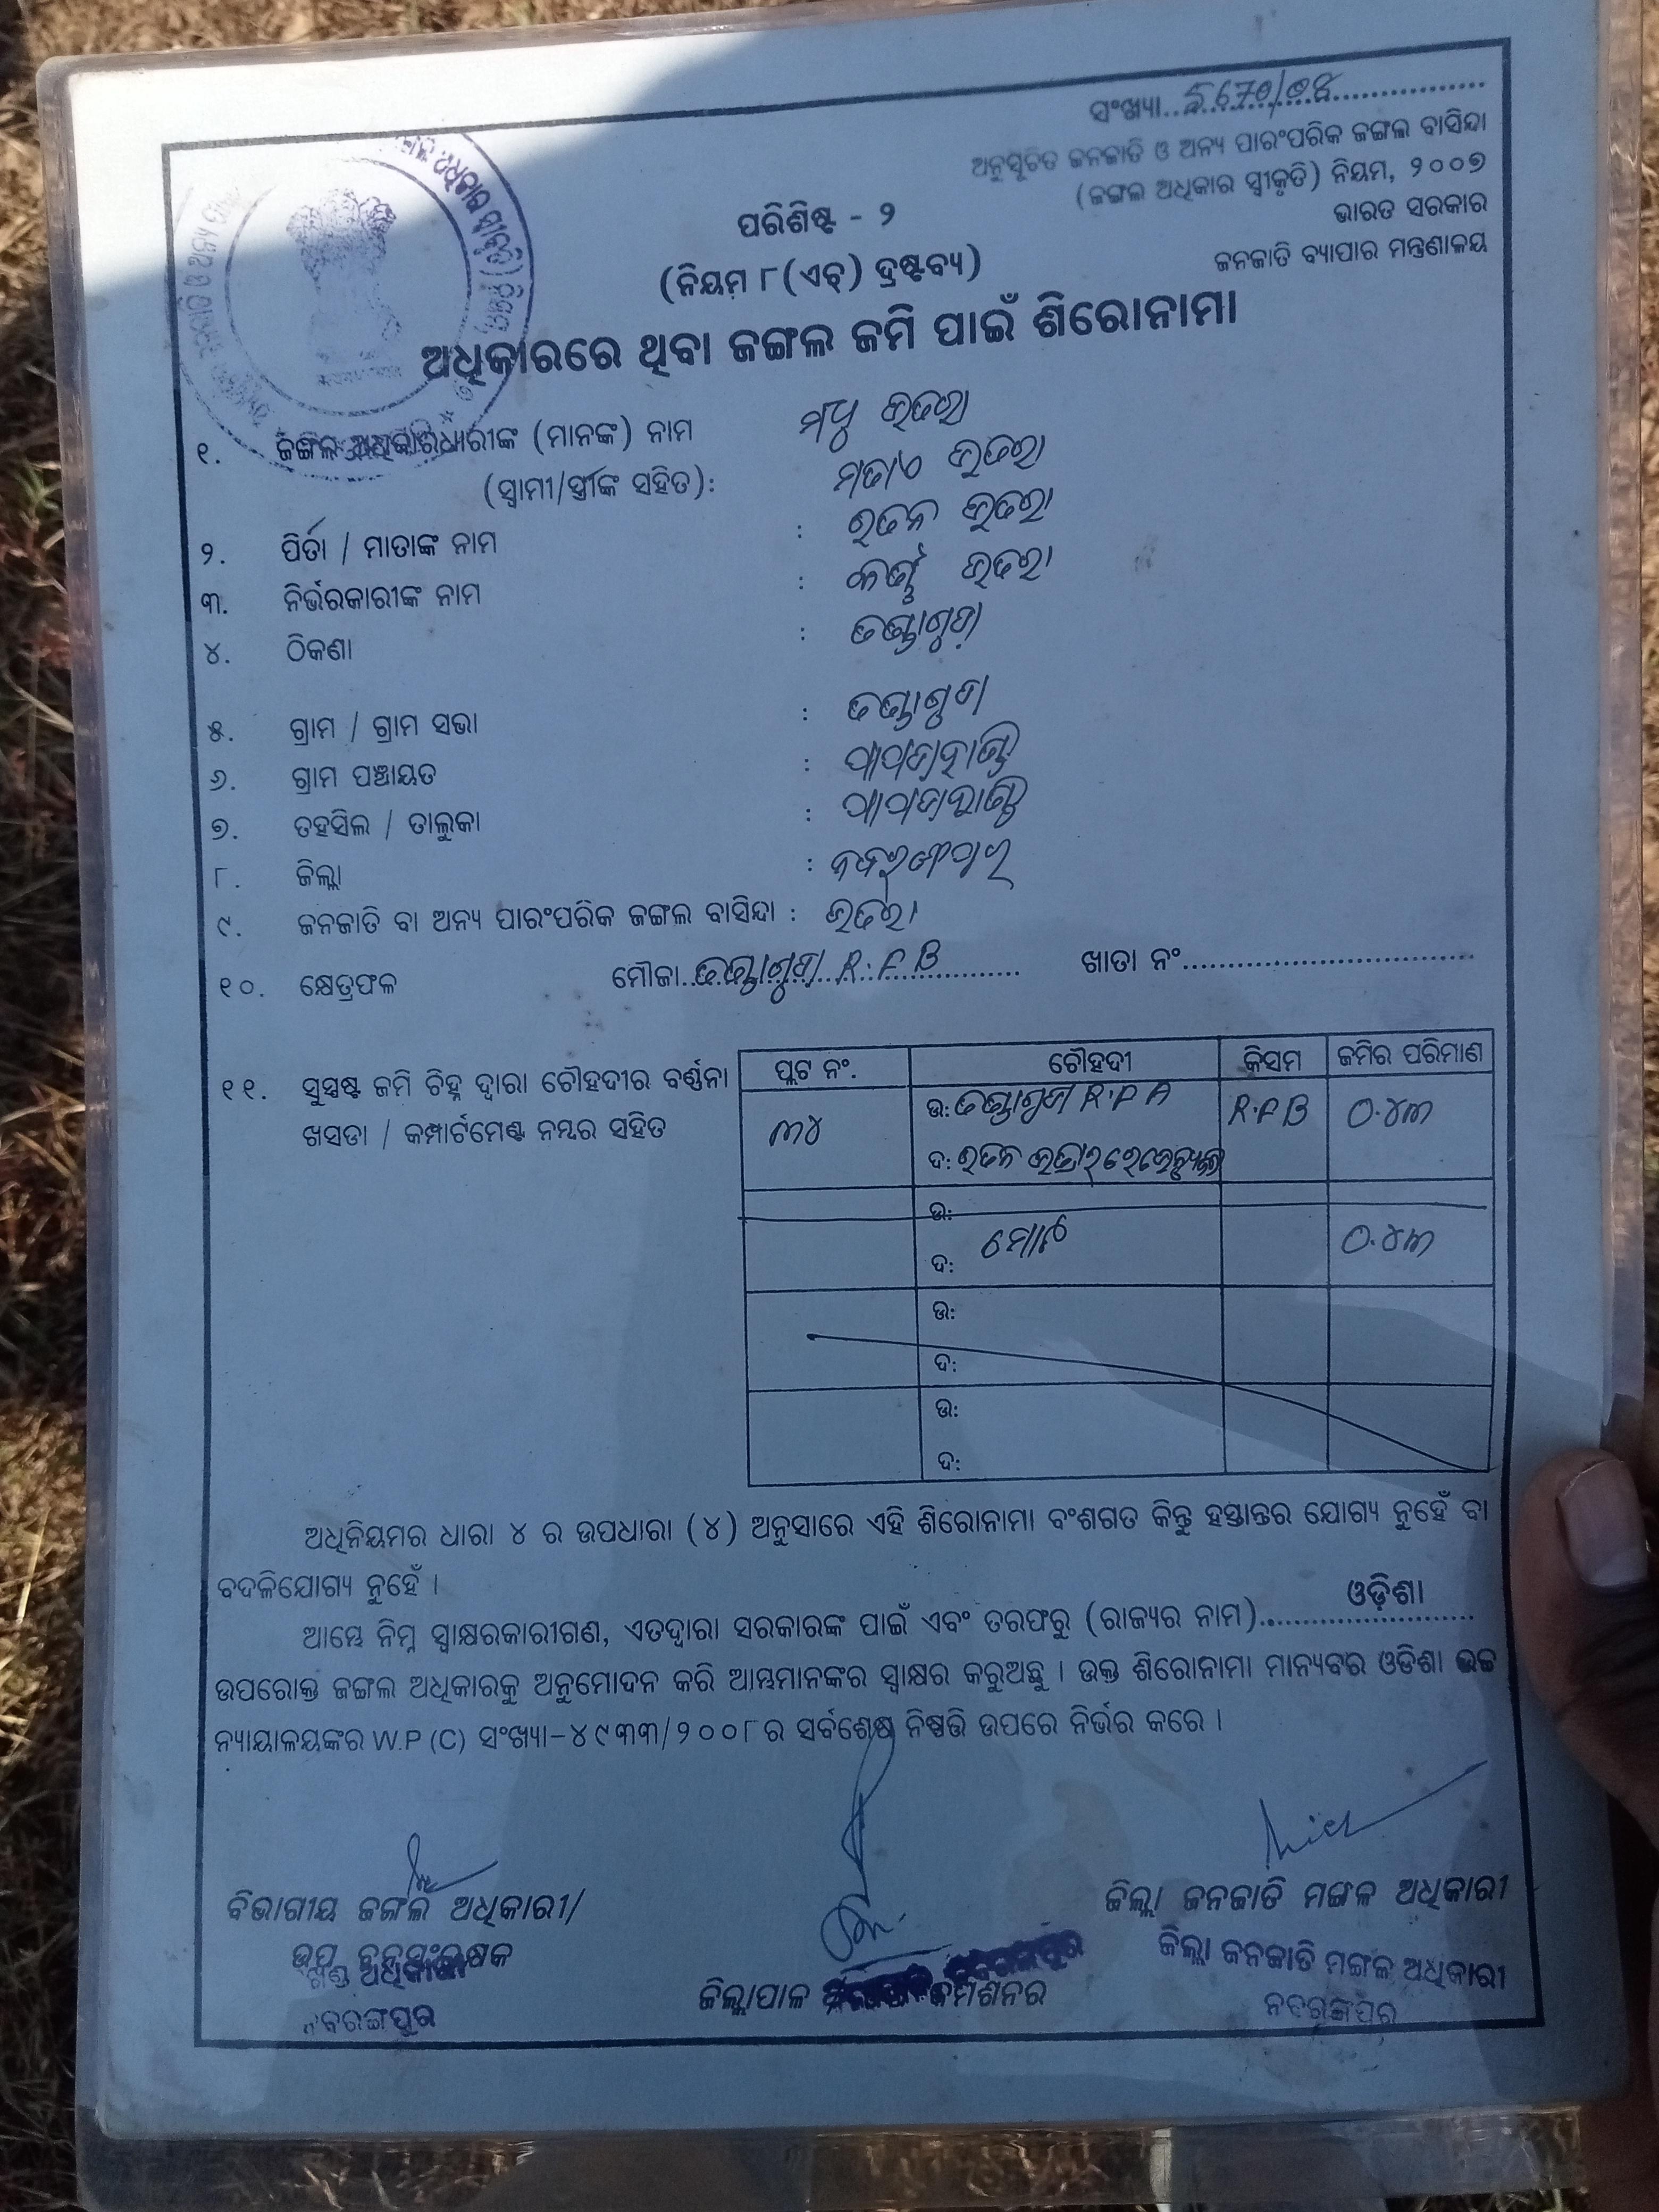 ସଂଖ୍ୟା..5670/08
ଅନୁସୂଚିତ ଜନଜାତି ଓ ଅନ୍ୟ ପାରଂପରିକ ଜଙ୍ଗଲ ବାସିନ୍ଦା
(ଜଙ୍ଗଲ ଅଧିକାର ସ୍ୱୀକୃତି) ନିୟମ, ୨୦୦୭
ଭାରତ ସରକାର
ଜନଜାତି ବ୍ୟାପାର ମନ୍ତ୍ରଣାଳୟ
ପରିଶିଷ୍ଟ - ୨
(ନିୟମ ୮(ଏଚ୍) ଦ୍ରଷ୍ଟବ୍ୟ)
ଅଧିକାରରେ ଥିବା ଜଙ୍ଗଲ ଜମି ପାଇଁ ଶିରୋନାମା
୧. ଜଙ୍ଗଲ ଅଧିକାରଧାରୀଙ୍କ (ମାନଙ୍କ) ନାମ ମଧୁ ଭତରା
(ସ୍ୱାମୀ/ସ୍ତ୍ରୀଙ୍କ ସହିତ): ଭତରା
୨. ପିତା / ମାତାଙ୍କ ନାମ : ରତନ ଭତରା
୩. ନିର୍ଭରକାରୀଙ୍କ ନାମ : ଭତରା
୪. ଠିକଣା :
୫. ଗ୍ରାମ / ଗ୍ରାମ ସଭା :
୬. ଗ୍ରାମ ପଞ୍ଚାୟତ : ପାପଡ଼ାହାଣ୍ଡି
୭. ତହସିଲ / ତାଲୁକା : ପାପଡ଼ାହାଣ୍ଡି
୮. ଜିଲ୍ଲା : ନବରଙ୍ଗପୁର
୯. ଜନଜାତି ବା ଅନ୍ୟ ପାରଂପରିକ ଜଙ୍ଗଲ ବାସିନ୍ଦା : ଭତରା
୧୦. କ୍ଷେତ୍ରଫଳ ମୌଜା.. R.F B ଖାତା ନଂ
୧୧. ସୁସ୍ପଷ୍ଟ ଜମି ଚିହ୍ନ ଦ୍ୱାରା ଚୌହଦୀର ବର୍ଣ୍ଣନା
ଖସଡା / କମ୍ପାର୍ଟମେଣ୍ଟ ନମ୍ବର ସହିତ
ପ୍ଲଟ ନଂ. ଚୌହଦୀ କିସମ ଜମିର ପରିମାଣ
୩୪ ଉ: R.F A R.F B ୦.୪୩
ଦ: ରତନ
ଉ:
ଦ: ମୋଟ ୦.୪୩
ଉ:
ଦ:
ଉ:
ଦ:
ଅଧିନିୟମର ଧାରା ୪ ର ଉପଧାରା (୪) ଅନୁସାରେ ଏହି ଶିରୋନାମା ବଂଶଗତ କିନ୍ତୁ ହସ୍ତାନ୍ତର ଯୋଗ୍ୟ ନୁହେଁ ବା
ବଦଳିଯୋଗ୍ୟ ନୁହେଁ ।
ଆମ୍ଭେ ନିମ୍ନ ସ୍ୱାକ୍ଷରକାରୀଗଣ, ଏତଦ୍ୱାରା ସରକାରଙ୍କ ପାଇଁ ଏବଂ ତରଫରୁ (ରାଜ୍ୟର ନାମ)...ଓଡ଼ିଶା
ଉପରୋକ୍ତ ଜଙ୍ଗଲ ଅଧିକାରକୁ ଅନୁମୋଦନ କରି ଆମ୍ଭମାନଙ୍କର ସ୍ୱାକ୍ଷର କରୁଅଛୁ । ଉକ୍ତ ଶିରୋନାମା ମାନ୍ୟବର ଓଡିଶା ଉଚ୍ଚ
ନ୍ୟାୟାଳୟଙ୍କର W.P (C) ସଂଖ୍ୟା-୪୯୩୩/୨୦୦୮ର ସର୍ବଶେଷ ନିଷ୍ପତ୍ତି ଉପରେ ନିର୍ଭର କରେ ।
ବିଭାଗୀୟ ଜଙ୍ଗଲ ଅଧିକାରୀ/
ଉପ ବନସଂରକ୍ଷକ
ନବରଙ୍ଗପୁର
ଜିଲ୍ଲାପାଳ କମିଶନର
ଜିଲ୍ଲା ଜନଜାତି ମଙ୍ଗଳ ଅଧିକାରୀ
ଜିଲ୍ଲା ଜନଜାତି ମଙ୍ଗଳ ଅଧିକାରୀ
ନବରଙ୍ଗପୁର